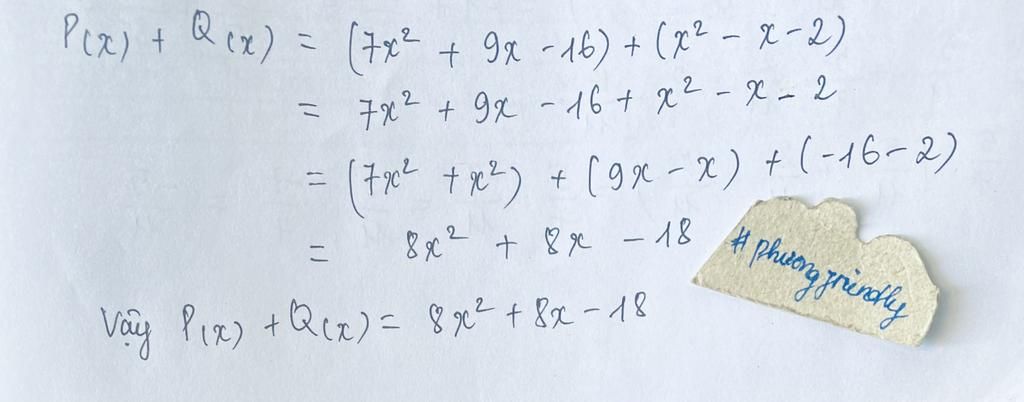 P(x) + Q(x) = (7x² + 9x - 16) + (x² - x - 2)
= 7x² + 9x - 16 + x² - x - 2
= (7x² + x²) + (9x - x) + (-16 - 2)
= 8x² + 8x - 18
#phuongfriendly
Vậy P(x) + Q(x) = 8x² + 8x - 18